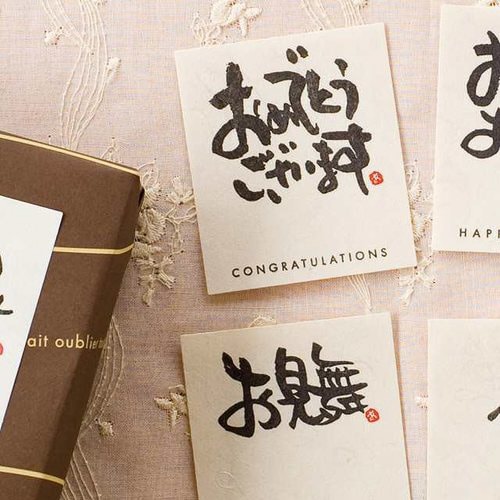 おめでとう
ございます
CONGRATULATIONS
お見舞
HAPP
ait oublier